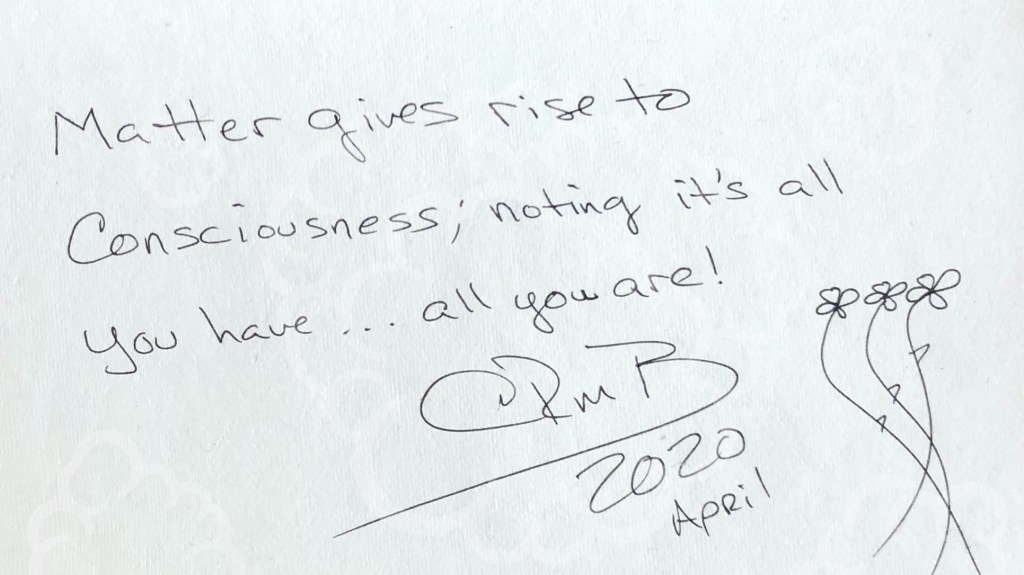 Matter gives rise to
Consciousness; noting it's all
you have... all you are!
2020
April